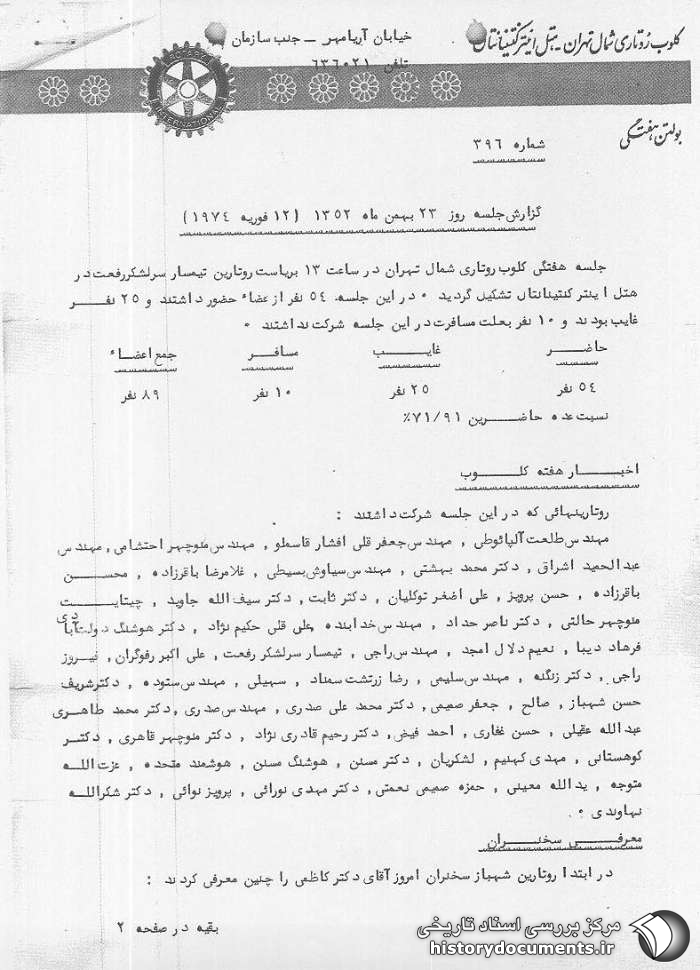 کلوب رُوتاری شمال تهران - هتل اینترکنتیناتال
خیابان آریامهر - جنب سازمان
تلفن ۶۳۶۰۲۱
INTERNATIONAL
بولتن هفتگی
شماره ۳۹۶
گزارش جلسه روز ۲۳ بهمن ماه ۱۳۵۲ (۱۲ فوریه ۱۹۷۴)
جلسه هفتگی کلوب روتاری شمال تهران در ساعت ۱۳ بریاست روتارین تیمسار سرلشکر رفعت در
هتل اینتر کنتیناتال تشکیل گردید ۰ در این جلسه ۵۴ نفر از عضاء حضور داشتند و ۲۵ نفر
غایب بودند و ۱۰ نفر بعلت مسافرت در این جلسه شرکت نداشتند ۰
حاضر غایب مسافر جمع اعضاء
۵۴ نفر ۲۵ نفر ۱۰ نفر ۸۹ نفر
نسبت عده حاضرین ۷۱/۹۱٪
اخبار هفته کلوب
روتارینهائی که در این جلسه شرکت داشتند :
مهندس طلعت آلپائوطی , مهندس جعفر قلی افشار قاسملو , مهندس منوچهر احتشامی , مهندس
عبدالحمید اشراق , دکتر محمد بهشتی , مهندس سیاوش بسیطی , غلامرضا باقرزاده , محسن
باقرزاده , حسن پرویز , علی اصغر توکلیان , دکتر ثابت , دکتر سیف الله جاوید , چیتایت
منوچهر حالتی , دکتر ناصر حداد , مهندس خدابنده , علی قلی حکیم نژاد , دکتر هوشنگ دولت‌آبادی
فرهاد دیبا , نعیم دلال امجد , مهندس راجی , تیمسار سرلشکر رفعت , علی اکبر رفوگران , فیروز
راجی , دکتر زنگنه , مهندس سلیمی , رضا زرتشت سهناد , سهیلی , مهندس ستوده , دکتر شریف
حسن شهباز , صالح , جعفر صمیمی , دکتر محمد علی صدری , مهندس صدری , دکتر محمد طاهری
عبدالله عقیلی , حسن غفاری , احمد فیض , دکتر رحیم قادری نژاد , دکتر منوچهر قاهری , دکتر
کوهستانی , مهدی کهنیم , لشکریان , دکتر مسنن , هوشنگ مسنن , هوشمند متحده , عزت الله
متوجه , یدالله معینی , حمزه صمیمی نعمتی , دکتر مهدی نورائی , پرویز نوائی , دکتر شکرالله
نهاوندی ۰
معرفی سخنران
در ابتدا روتارین شهباز سخنران امروز آقای دکتر کاظمی را چنین معرفی کردند :
بقیه در صفحه ۲
مرکز بررسی اسناد تاریخی
historydocuments.ir